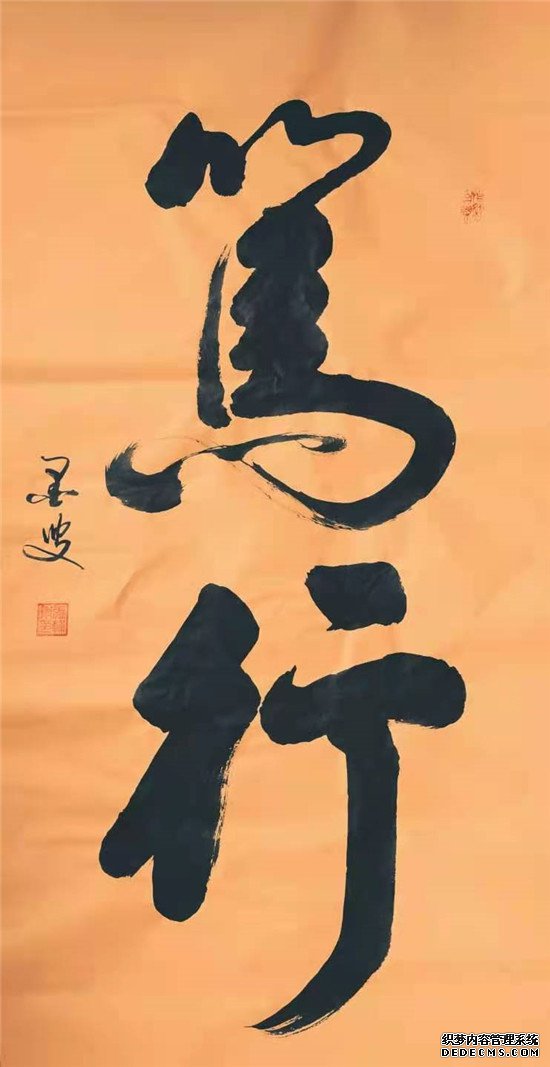 篤行
墨叟
织梦内容管理系统
DEDECMS.COM